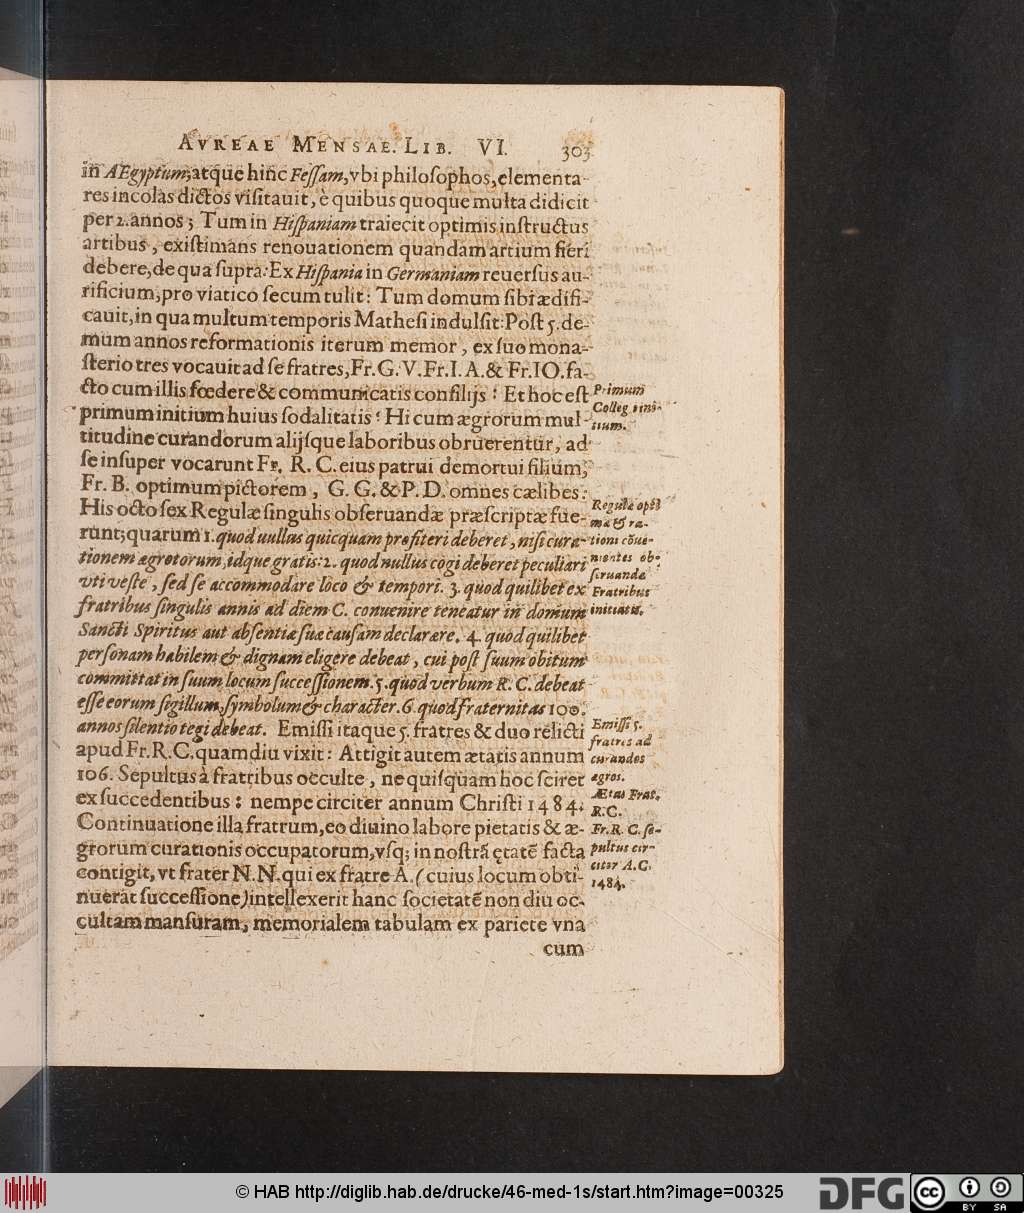 AVREAE MENSAE. LIB. VI. 303
in AEgyptum, atque hinc Feſſam, vbi philoſophos, elementa-
res incolas dictos viſitauit, è quibus quoque multa didicit
per 2. annos; Tum in Hiſpaniam traiecit optimis inſtructus
artibus, exiſtimans renouationem quandam artium fieri
debere, de qua ſupra: Ex Hiſpania in Germaniam reuerſus au-
rificium, pro viatico ſecum tulit: Tum domum ſibi ædifi-
cauit, in qua multum temporis Matheſi indulſit: Poſt 5. de-
mum annos reformationis iterum memor, ex ſuo mona-
ſterio tres vocauit ad ſe fratres, Fr. G. V. Fr. I. A. & Fr. IO. fa-
cto cum illis fœdere & communicatis conſilijs: Et hoc eſt
primum initium huius ſodalitatis: Hi cum ægrorum mul-
titudine curandorum alijſque laboribus obruerentur, ad
ſe inſuper vocarunt Fr. R. C. eius patrui demortui filium,
Fr. B. optimum pictorem, G. G. & P. D. omnes cælibes:
His octo ſex Regulæ ſingulis obſeruandæ præſcriptæ fue-
runt; quarum 1. quod nullus quicquam profiteri deberet, niſi cura-
tionem ægrotorum, idque gratis: 2. quod nullus cogi deberet peculiari
vti veſte, ſed ſe accommodare loco & tempori. 3. quod quilibet ex
fratribus ſingulis annis ad diem C. conuenire teneatur in domum
Sancti Spiritus aut abſentiæ ſuæ cauſam declarare. 4. quod quilibet
perſonam habilem & dignam eligere debeat, cui poſt ſuum obitum
committat in ſuum locum ſucceſſionem. 5. quod verbum R. C. debeat
eſſe eorum ſigillum, ſymbolum & character. 6. quod fraternitas 100.
annos ſilentio tegi debeat. Emiſſi itaque 5. fratres & duo relicti
apud Fr. R. C. quamdiu vixit: Attigit autem ætatis annum
106. Sepultus à fratribus occulte, ne quiſquam hoc ſciret
ex ſuccedentibus: nempe circiter annum Chriſti 1484.
Continuatione illa fratrum, eo diuino labore pietatis & æ-
grorum curationis occupatorum, vſq; in noſtrã ętatẽ facta
contigit, vt frater N. N. qui ex fratre A. (cuius locum obti-
nuerat ſucceſſione) intellexerit hanc ſocietatẽ non diu oc-
cultam manſuram, memorialem tabulam ex pariete vna
cum
Primum
Colleg. ini-
tium.
Regulæ opti
mæ & ra-
tioni cõue-
nientes ob-
ſeruandæ
Fratribus
initiatis.
Emiſſi 5.
fratres ad
curandos
ægros.
Ætas Frat.
R. C.
Fr. R. C. ſe-
pultus cir-
citer A. C.
1484.
© HAB http://diglib.hab.de/drucke/46-med-1s/start.htm?image=00325
DFG
cc
BY SA